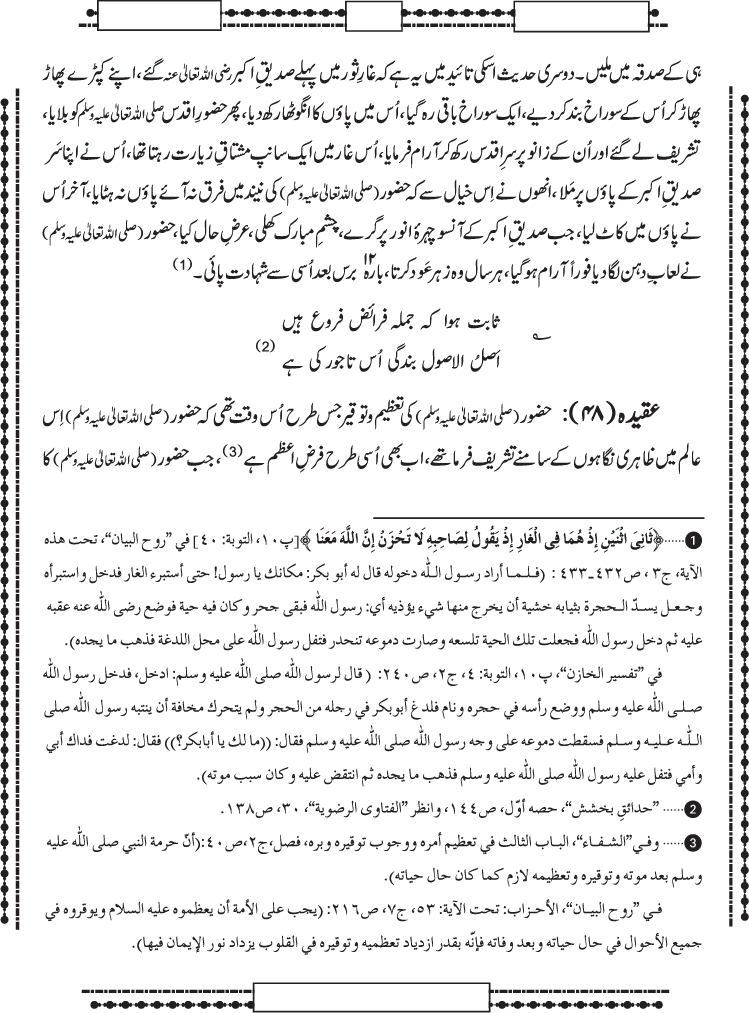 ہی کے صدقہ میں ملیں۔ دوسری حدیث اسکی تائید میں یہ ہے کہ غارِ ثور میں پہلے صدیقِ اکبر رضی اللہ تعالیٰ عنہ گئے، اپنے کپڑے پھاڑ
پھاڑ کر اُس کے سوراخ بند کر دیے، ایک سوراخ باقی رہ گیا، اُس میں پاؤں کا انگوٹھا رکھ دیا، پھر حضورِ اقدس صلی اللہ تعالیٰ علیہ وسلم کو بلایا،
تشریف لے گئے اور اُن کے زانو پر سرِ اقدس رکھ کر آرام فرمایا، اُس غار میں ایک سانپ مشتاقِ زیارت رہتا تھا، اُس نے اپنا سَر
صدیقِ اکبر کے پاؤں پر مَلا، انھوں نے اِس خیال سے کہ حضور (صلی اللہ تعالیٰ علیہ وسلم) کی نیند میں فرق نہ آئے پاؤں نہ ہٹایا، آخر اُس
نے پاؤں میں کاٹ لیا، جب صدیقِ اکبر کے آنسو چہرۂ انور پر گرے، چشمِ مبارک کھلی، عرضِ حال کیا، حضور (صلی اللہ تعالیٰ علیہ وسلم)
نے لعابِ دہن لگا دیا فوراً آرام ہوگیا، ہر سال وہ زہر عَود کرتا، بارہ۱۲ برس بعد اُسی سے شہادت پائی۔ (1)
؎ ثابت ہوا کہ جملہ فرائض فروع ہیں
اصلُ الاصول بندگی اُس تاجور کی ہے (2)
عقیدہ (۴۸): حضور (صلی اللہ تعالیٰ علیہ وسلم) کی تعظیم و توقیر جس طرح اُس وقت تھی کہ حضور (صلی اللہ تعالیٰ علیہ وسلم) اِس
عالم میں ظاہری نگاہوں کے سامنے تشریف فرماتھے، اب بھی اُسی طرح فرضِ اعظم ہے (3)، جب حضور (صلی اللہ تعالیٰ علیہ وسلم) کا
1 ...... ﴿ثَانِیَ اثْنَیْنِ اِذْ هُمَا فِی الْغَارِ اِذْ یَقُولُ لِصَاحِبِهِ لَا تَحْزَنْ اِنَّ اللّٰهَ مَعَنَا﴾ [پ۱۰، التوبة: ۴۰] في ”روح البيان“، تحت هذه
الآية، ج۳، ص۴۳۲-۴۳۳ : (فلما أراد رسول اللّٰه دخوله قال له أبو بكر: مكانك يا رسول! حتى أستبرء الغار فدخل واستبرأه
وجعل يسدّ الحجرة بثيابه خشية أن يخرج منها شيء يؤذيه أي: رسول اللّٰه فبقى جحر وكان فيه حية فوضع رضى اللّٰه عنه عقبه
عليه ثم دخل رسول اللّٰه فجعلت تلك الحية تلسعه وصارت دموعه تنحدر فتفل رسول اللّٰه على محل اللدغة فذهب ما يجده).
في ”تفسير الخازن“، پ۱۰، التوبة: ۴، ج۲، ص۲۴۰: ( قال لرسول اللّٰه صلى اللّٰه عليه وسلم: ادخل، فدخل رسول اللّٰه
صلى اللّٰه عليه وسلم ووضع رأسه في حجره ونام فلدغ أبوبكر في رجله من الحجر ولم يتحرك مخافة أن ينتبه رسول اللّٰه صلى
اللّٰه عليه وسلم فسقطت دموعه على وجه رسول اللّٰه صلى اللّٰه عليه وسلم فقال: ((ما لك يا أبابكر؟)) فقال: لدغت فداك أبي
وأمي فتفل عليه رسول اللّٰه صلى اللّٰه عليه وسلم فذهب ما يجده ثم انتقض عليه وكان سبب موته).
2 ...... ”حدائقِ بخشش“، حصه أوّل، ص۱۴۴، وانظر ”الفتاوى الرضوية“، ۳۰، ص۱۳۸.
3 ...... وفي”الشفاء“، الباب الثالث في تعظيم أمره ووجوب توقيره وبره، فصل،ج۲،ص۴۰:(أنّ حرمة النبي صلى اللّٰه عليه
وسلم بعد موته وتوقيره وتعظيمه لازم كما كان حال حياته).
في ”روح البيان“، الأحزاب: تحت الآية: ۵۳، ج۷، ص۲۱۶: (يجب على الأمة أن يعظموه عليه السلام ويوقروه في
جميع الأحوال في حال حياته وبعد وفاته فإنّه بقدر ازدياد تعظميه وتوقيره في القلوب يزداد نور الإيمان فيها).